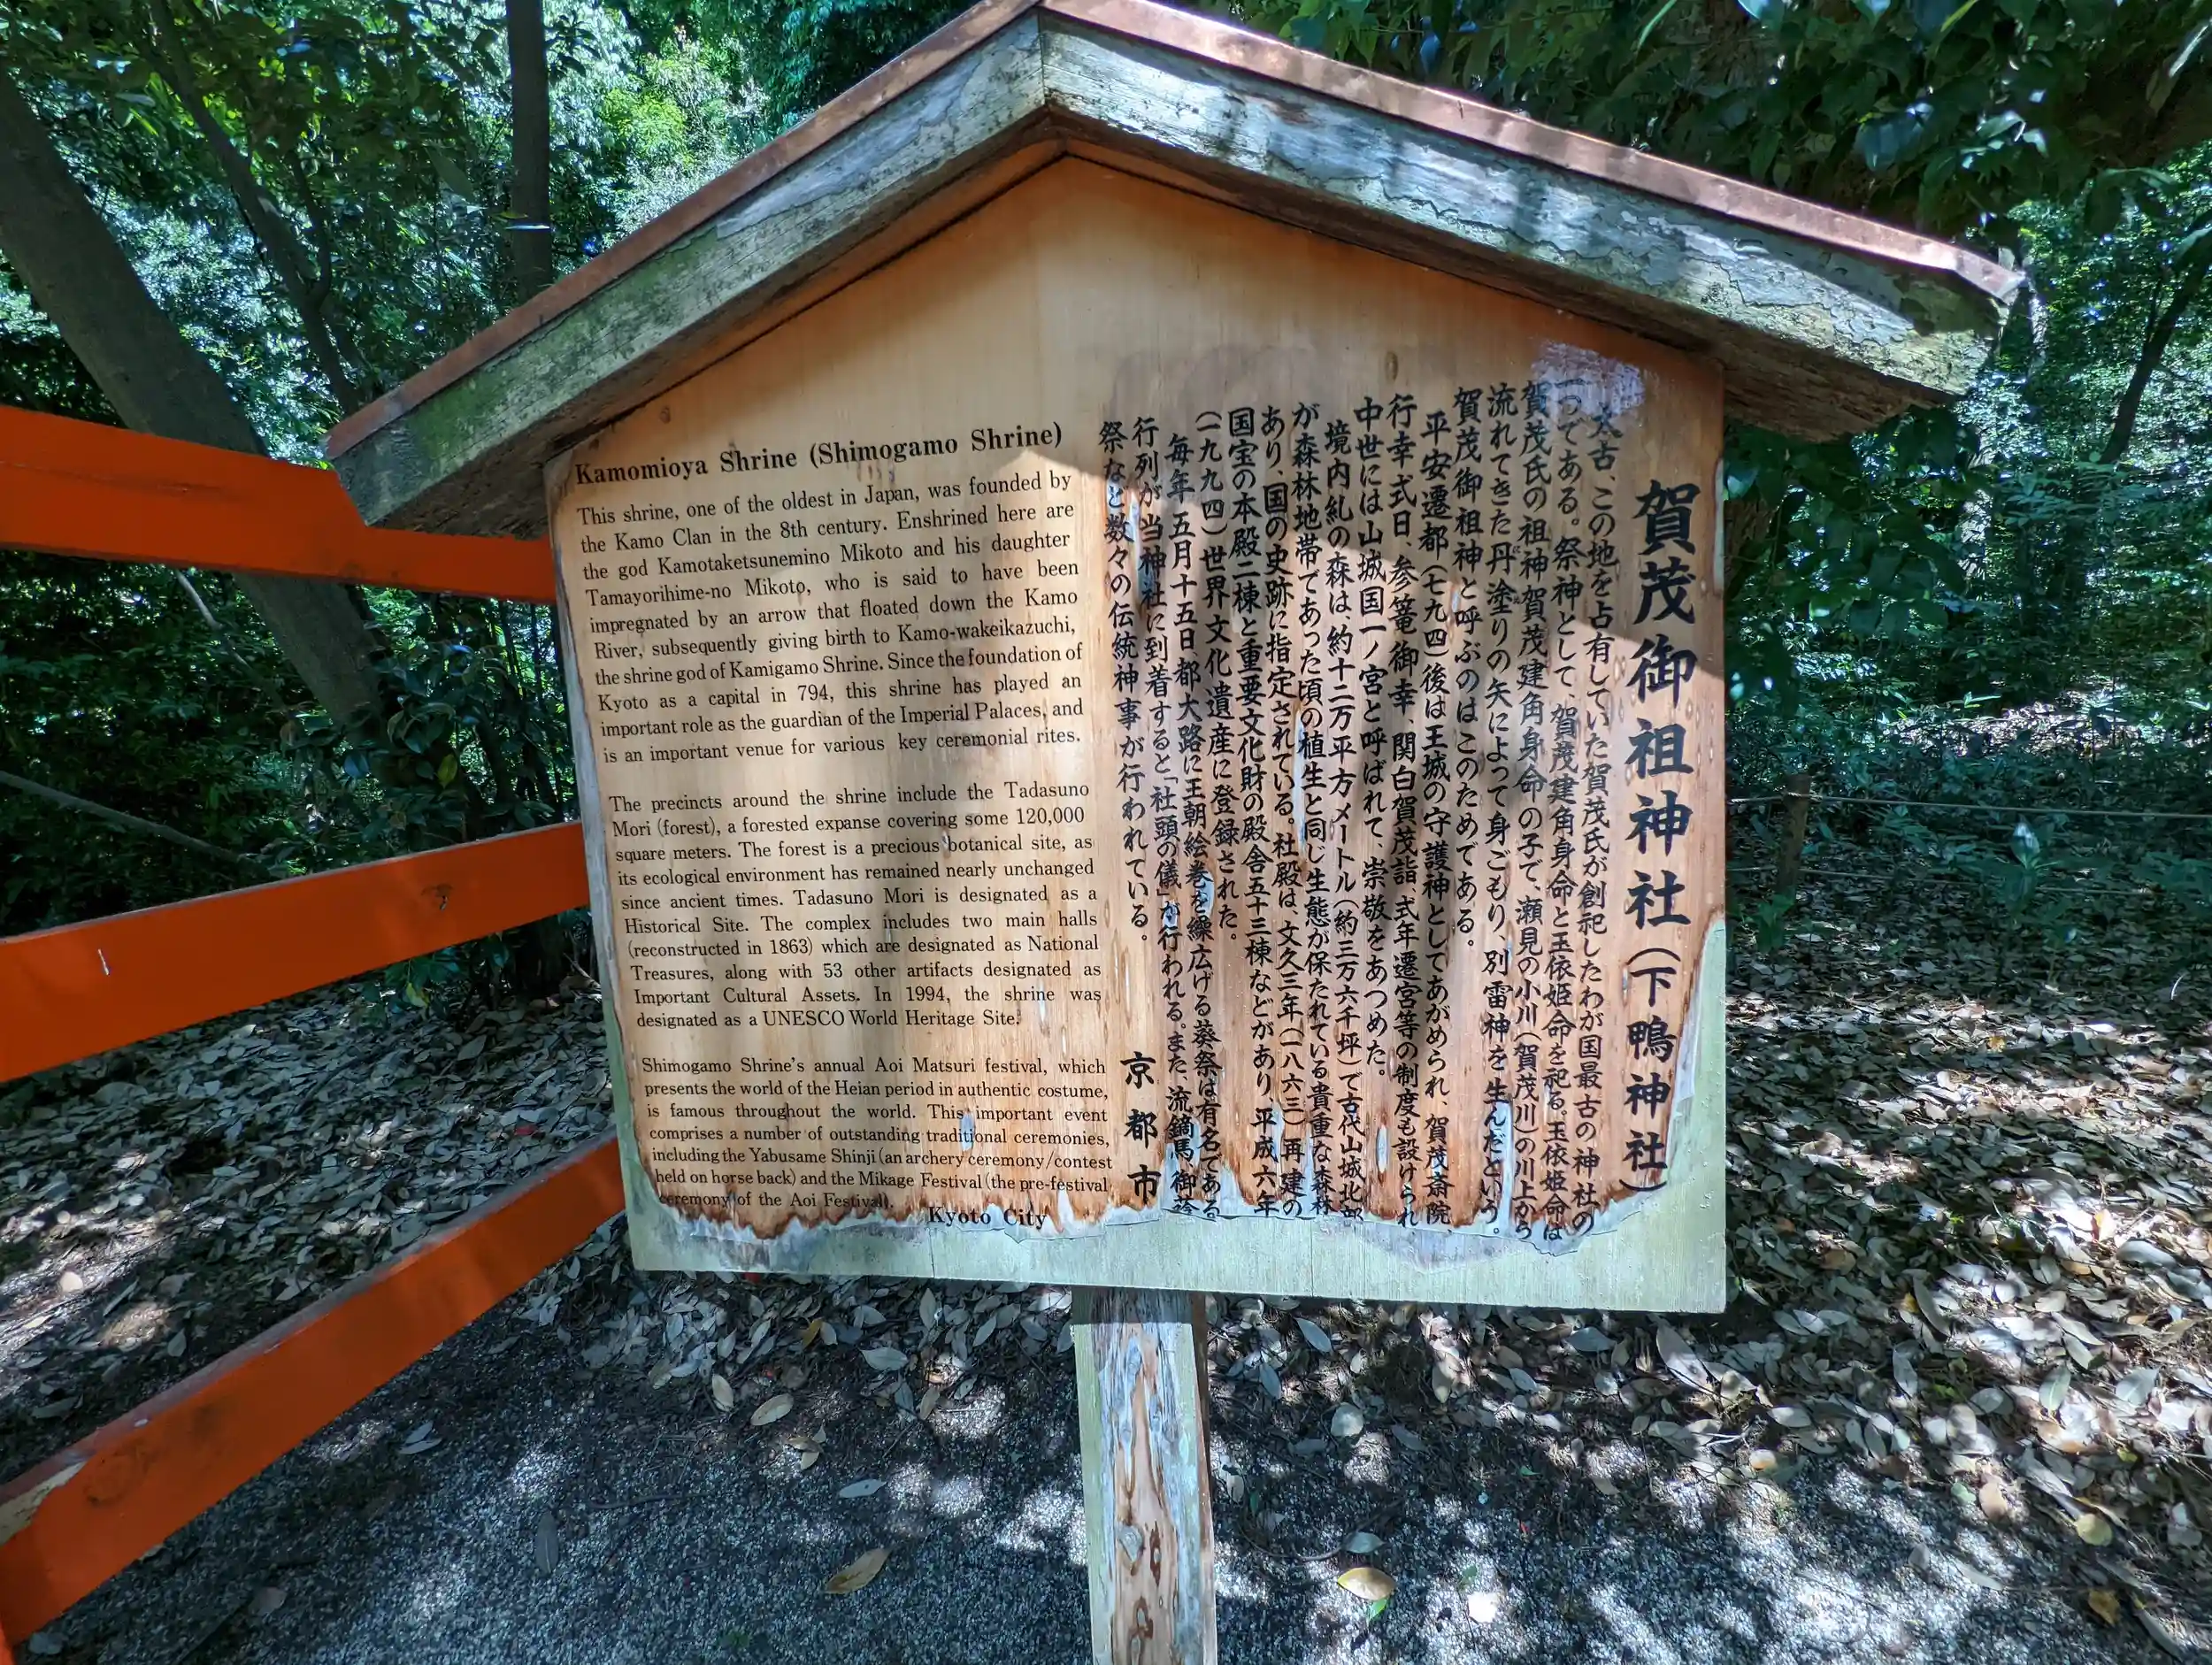 Kamomioya Shrine (Shimogamo Shrine)
This shrine, one of the oldest in Japan, was founded by
the Kamo Clan in the 8th century. Enshrined here are
the god Kamotaketsunemino Mikoto and his daughter
Tamayorihime-no Mikoto, who is said to have been
impregnated by an arrow that floated down the Kamo
River, subsequently giving birth to Kamo-wakeikazuchi,
the shrine god of Kamigamo Shrine. Since the foundation of
Kyoto as a capital in 794, this shrine has played an
important role as the guardian of the Imperial Palaces, and
is an important venue for various key ceremonial rites.
The precincts around the shrine include the Tadasuno
Mori (forest), a forested expanse covering some 120,000
square meters. The forest is a precious botanical site, as
its ecological environment has remained nearly unchanged
since ancient times. Tadasuno Mori is designated as a
Historical Site. The complex includes two main halls
(reconstructed in 1863) which are designated as National
Treasures, along with 53 other artifacts designated as
Important Cultural Assets. In 1994, the shrine was
designated as a UNESCO World Heritage Site.
Shimogamo Shrine's annual Aoi Matsuri festival, which
presents the world of the Heian period in authentic costume,
is famous throughout the world. This important event
comprises a number of outstanding traditional ceremonies,
including the Yabusame Shinji (an archery ceremony/contest
held on horse back) and the Mikage Festival (the pre-festival
ceremony of the Aoi Festival).
Kyoto City
賀茂御祖神社（下鴨神社）
太古、この地を占有していた賀茂氏が創祀したわが国最古の神社の
一つである。祭神として、賀茂建角身命と玉依姫命を祀る。玉依姫命は
賀茂氏の祖神賀茂建角身命の子で、瀬見の小川（賀茂川）の川上から
流れてきた丹塗りの矢によって身ごもり、別雷神を生んだという。
賀茂御祖神と呼ぶのはこのためである。
平安遷都（七九四）後は王城の守護神としてあがめられ、賀茂斎院、
行幸式日、参篭御幸、関白賀茂詣、式年遷宮等の制度も設けられ
中世には山城国一ノ宮と呼ばれて、崇敬をあつめた。
境内糺の森は、約十二万平方メートル（約三万六千坪）で古代山城北部
が森林地帯であった頃の植生と同じ生態が保たれている貴重な森林
あり、国の史跡に指定されている。社殿は、文久三年（一八六三）再建の
国宝の本殿二棟と重要文化財の殿舎五十三棟などがあり、平成六年
（一九九四）世界文化遺産に登録された。
毎年五月十五日、都大路に王朝絵巻を繰広げる葵祭は有名である
行列が当神社に到着すると「社頭の儀」が行われる。また、流鏑馬、御蔭
祭など数々の伝統神事が行われている。
京都市